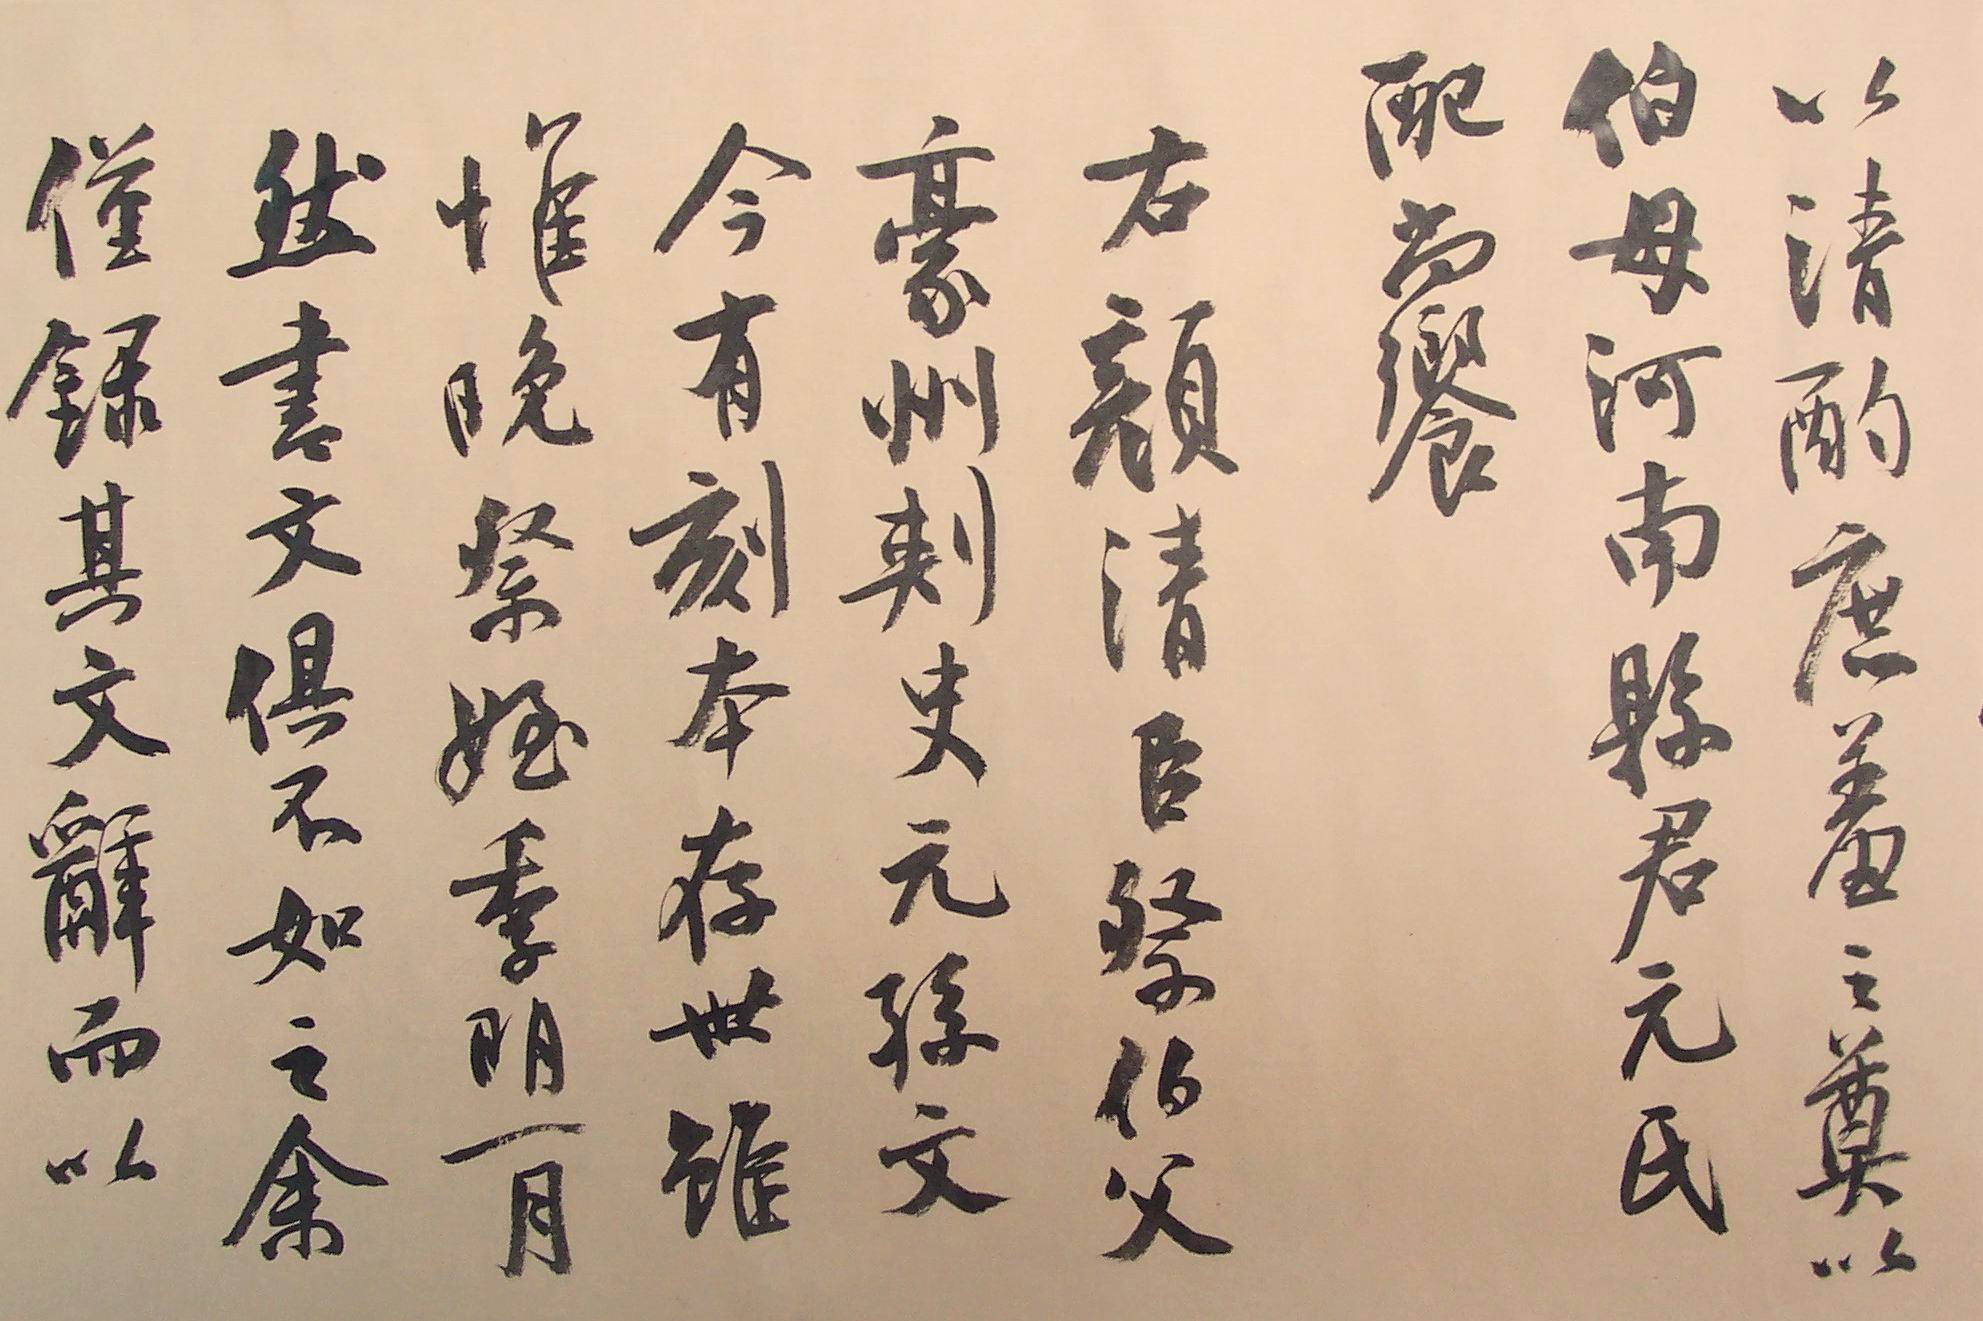 以清酌庶羞之奠以
伯母河南縣君元氏
配尚饗
右顏清臣祭伯父
豪州刺史元孫文
今有刻本存世雖
惟晚祭姪季明一月
然書文俱不如之余
僅錄其文辭而以